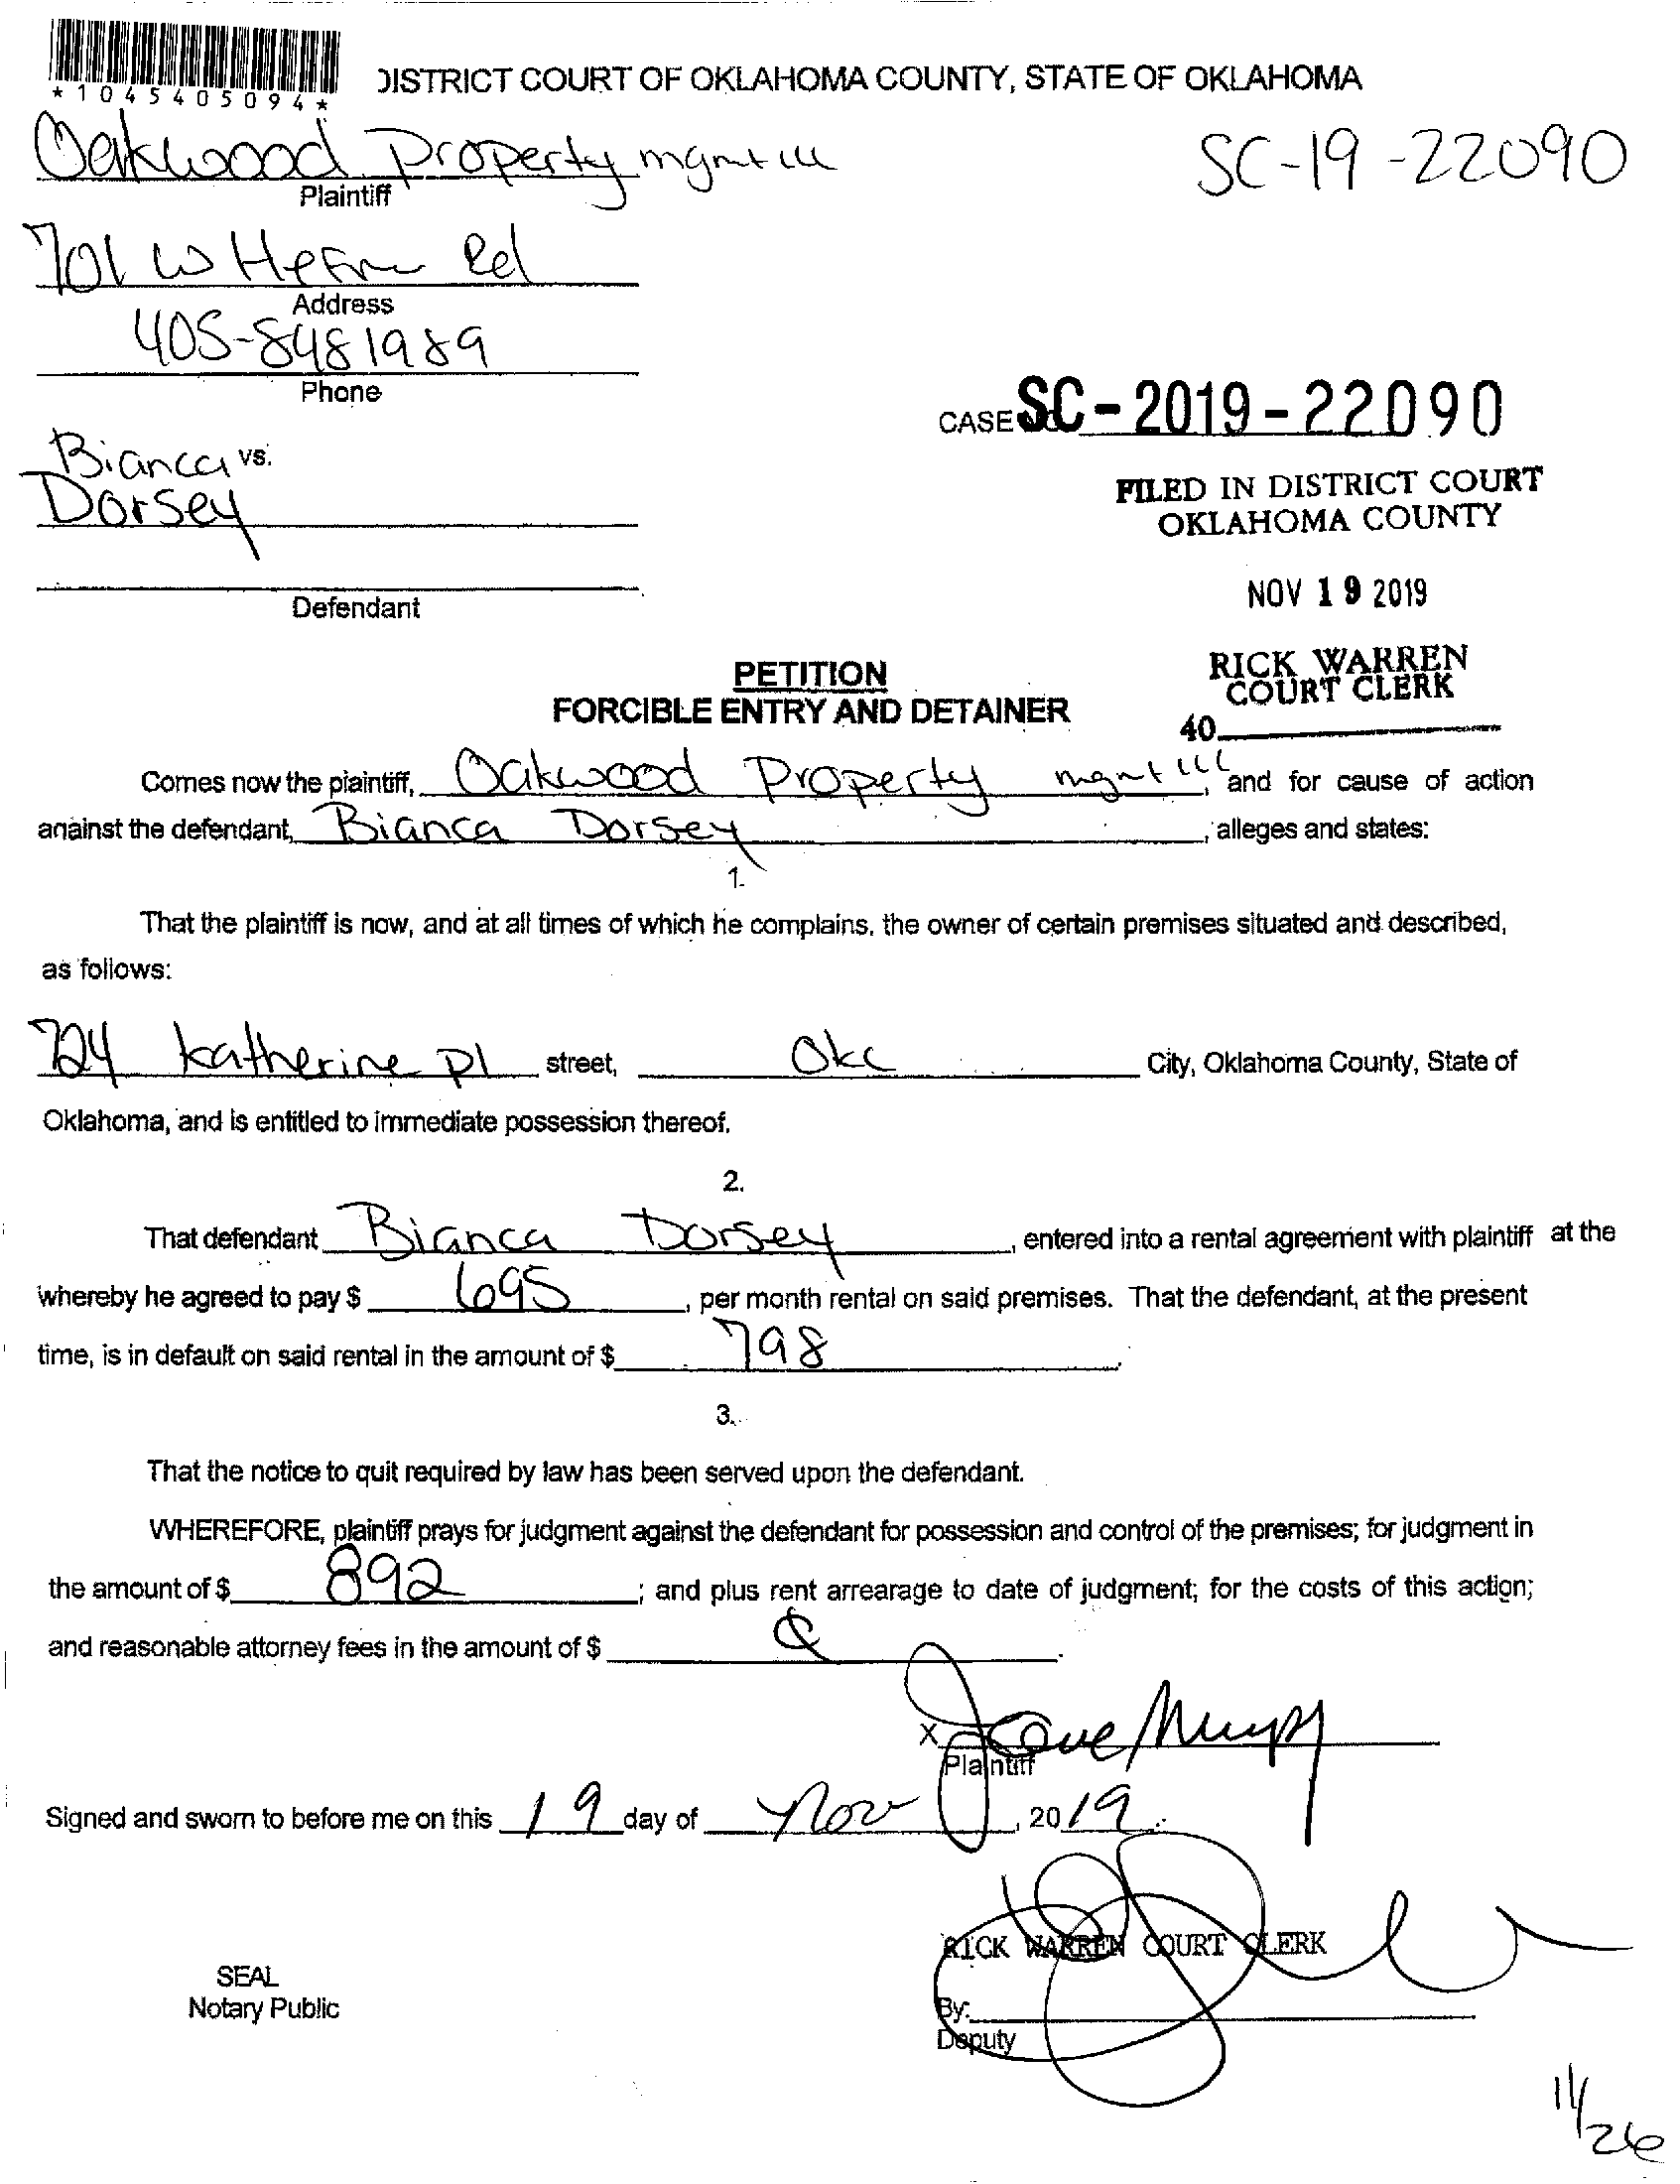 *1045405094*
DISTRICT COURT OF OKLAHOMA COUNTY, STATE OF OKLAHOMA
Oakwood Property mgmt
SC-19-22090
Plaintiff
701 W Rd
Address
405-8481989
Phone
CASE SC-2019-22090
Bianca vs.
Dorsey
FILED IN DISTRICT COURT
OKLAHOMA COUNTY
NOV 19 2019
Defendant
RICK WARREN
COURT CLERK
40
PETITION
FORCIBLE ENTRY AND DETAINER
Comes now the plaintiff, Oakwood Property mgmt, and for cause of action
against the defendant, Bianca Dorsey, alleges and states:
1.
That the plaintiff is now, and at all times of which he complains, the owner of certain premises situated and described,
as follows:
724 Katherine Pl street, Okc City, Oklahoma County, State of
Oklahoma, and is entitled to immediate possession thereof.
2.
That defendant Bianca Dorsey, entered into a rental agreement with plaintiff at the
whereby he agreed to pay $ 695, per month rental on said premises. That the defendant, at the present
time, is in default on said rental in the amount of $ 798.
3.
That the notice to quit required by law has been served upon the defendant.
WHEREFORE, plaintiff prays for judgment against the defendant for possession and control of the premises; for judgment in
the amount of $ 892; and plus rent arrearage to date of judgment; for the costs of this action;
and reasonable attorney fees in the amount of $
X
Plaintiff
Signed and sworn to before me on this 19 day of Nov, 2019.
RICK WARREN COURT CLERK
SEAL
Notary Public
By:
Deputy
11/26